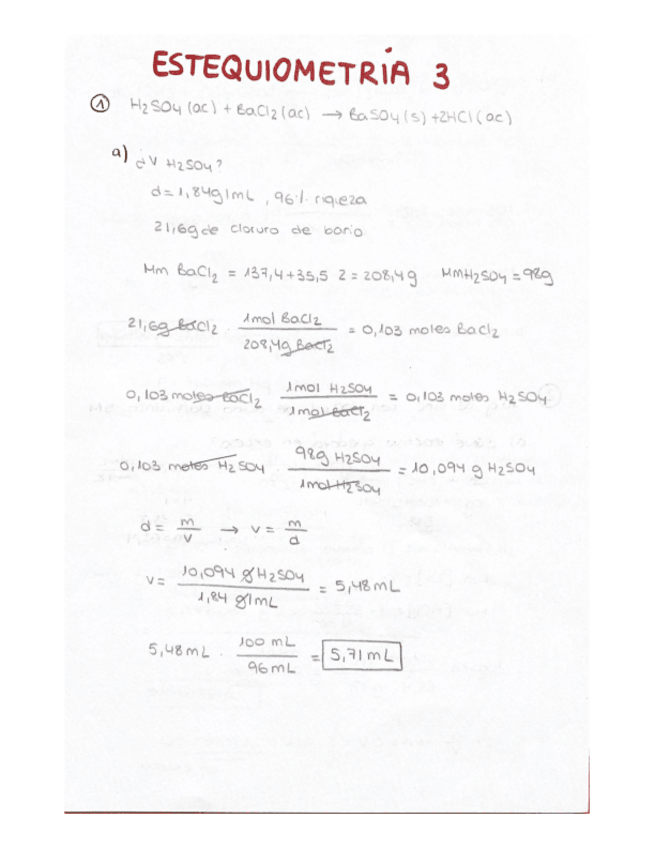 ESTEQUIOMETRÍA 3
① H2SO4 (ac) + BaCl2 (ac) → BaSO4 (s) + 2HCl (ac)
a) ¿V H2SO4?
d = 1,84g/mL , 96% riqueza
21,6g de cloruro de bario
Mm BaCl2 = 137,4 + 35,5 2 = 208,4g MmH2SO4 = 98g
21,6g BaCl2 · 1mol BaCl2 / 208,4g BaCl2 = 0,103 moles BaCl2
0,103 moles BaCl2 1mol H2SO4 / 1mol BaCl2 = 0,103 moles H2SO4
0,103 moles H2SO4 · 98g H2SO4 / 1mol H2SO4 = 10,094 g H2SO4
d = m/v → v = m/d
v = 10,094 g H2SO4 / 1,84 g/mL = 5,48 mL
5,48 mL · 100 mL / 96 mL = 5,71 mL